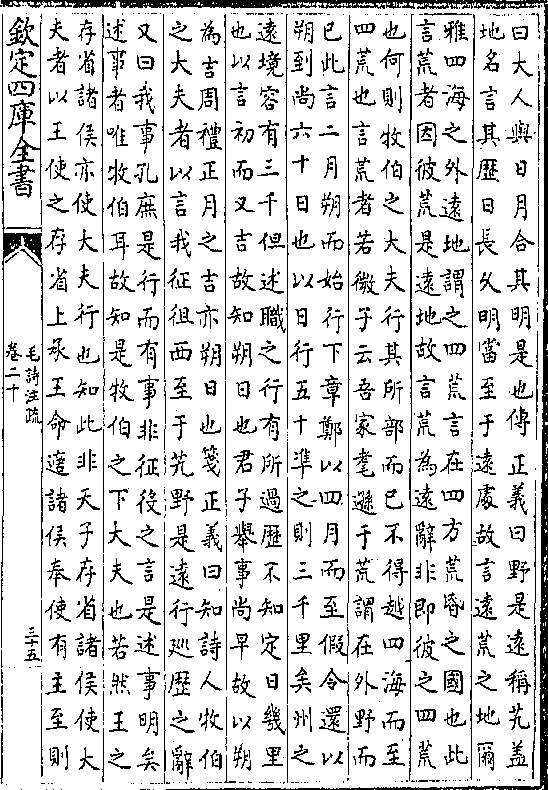 曰大人與日月合其明是也傳正義曰野是遠稱艽蓋
地名言其歴日長久明當至于遠處故言遠荒之地爾
雅四海之外遠地謂之四荒言在四方荒昏之國也此
言荒者因彼荒是遠地故言荒為遠辭非即彼之四荒
也何則牧伯之大夫行其所部而已不得越四海而至
四荒也言荒者若微子云吾家耄遜于荒謂在外野而
已此言二月朔而始行下章鄭以四月而至假令還以
朔到尚六十日也以日行五十準之則三千里矣州之
遠境容有三千但述職之行有所過歴不知定日幾里
也以言初而又吉故知朔日也君子舉事尚早故以朔
為吉周禮正月之吉亦朔日也箋正義曰知詩人牧伯
之大夫者以言我征徂西至于艽野是遠行廵歴之辭
又曰我事孔庶是行而有事非征役之言是述事明矣
述事者唯牧伯耳故知是牧伯之下大夫也若然王之
存省諸侯亦使大夫行也知此非天子存省諸侯使大
夫者以王使之存省上承王命適諸侯奉使有主至則
欽定四庫全書
毛詩注疏
卷二十
三十五